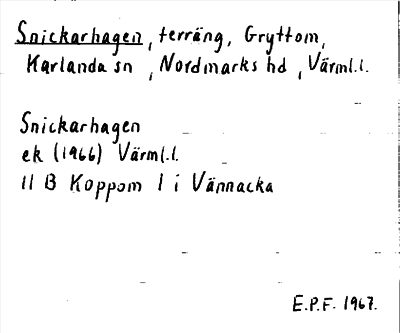 Snickarhagen, terräng, Gryttom,
Karlanda sn, Nordmarks hd, Värml.l.
Snickarhagen
ek (1966) Värml.l.
11 B Koppom 1 i Vännacka
E.P.F. 1967.